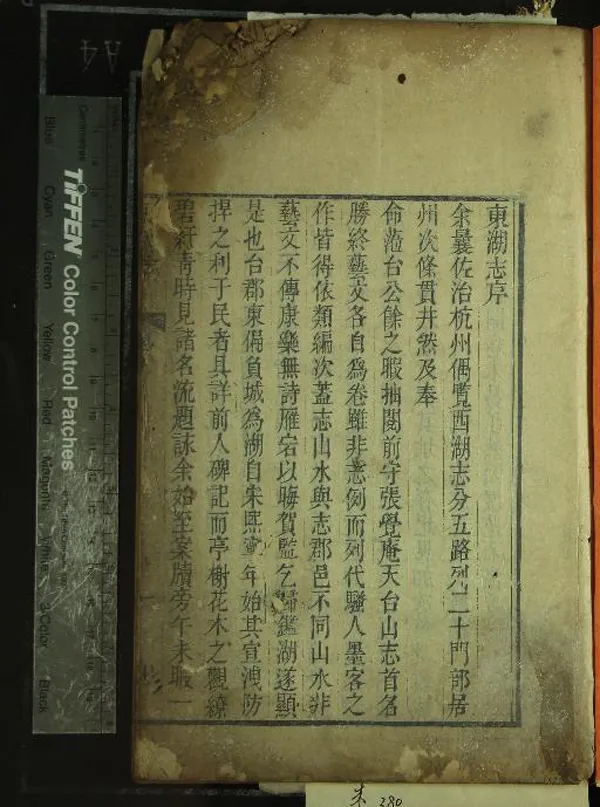 東湖志序
余曩佐治杭州偶覧西湖志分五路列二十門部居
州次條貫井然及奉
命蒞台公餘之暇抽閱前守張覺庵天台山志首名
勝終藝文各自為卷雖非志例而列代騷人墨客之
作皆得依類編次蓋志山水與志郡邑不同山水非
藝文不傳康樂無詩雁宕以晦賀監乞歸鑑湖遂顯
是也台郡東偏負城為湖自宋熙寧年始其宣洩防
捍之利于民者具詳前人碑記而亭榭花木之觀繚
碧紆青時見諸名流題詠余始至案牘旁午未暇一
A4
Centimetres
TIFFEN Color Control Patches
Blue
Cyan
Green
Yellow
Red
Magenta
White
3-Color
Black
朱 280